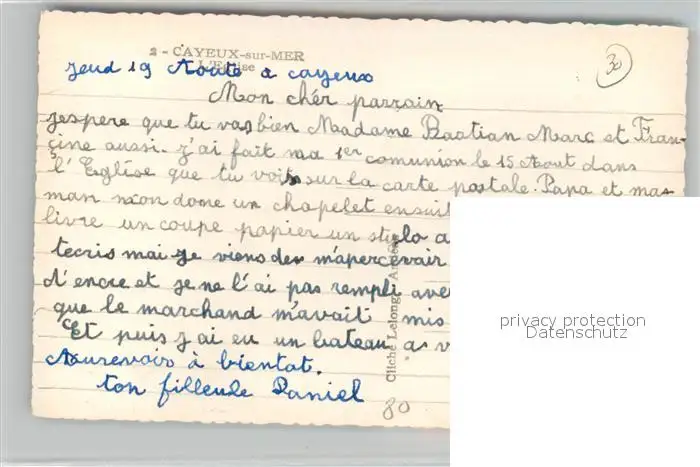 2 - CAYEUX-sur-MER
L'Eglise
jeud 19 Aoute a cayeux
30
Mon chér parrain
jespere que tu vas bien Madame Bastian Marc et Fran-
çine aussi. j'ai fait ma 1er comunion le 15 Aout dans
l'Eglise que tu vois sur la carte postale. Papa et ma
man mon done un chapelet ensuit
livre un coupe papier un stylo a
tecris mai je viens de m'apercevair
d'encre et je ne l'ai pas rempli ave
que le marchand m'avait mis
Et puis j'ai eu un bateau a v
Aurevoir à bientat.
ton filleule Daniel
Cliché Lelong
80
privacy protection
Datenschutz